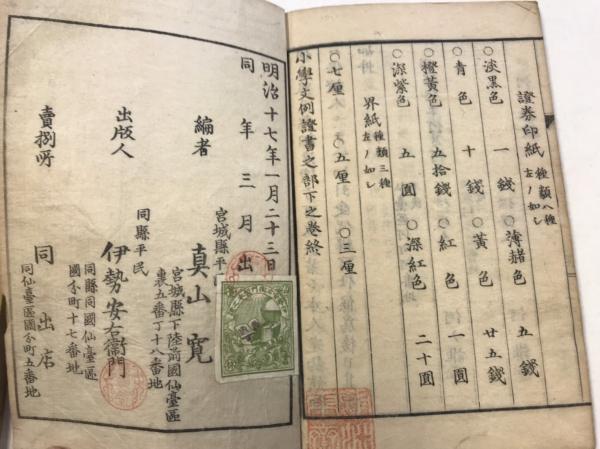 證券印紙 種類八種 左ノ如シ
○淡黒色 一錢 ○薄赭色 五錢
○青色 十錢 ○黄色 廿五錢
○橙黄色 五拾錢 ○紅色 一圓
○深紫色 五圓 ○深紅色 二十圓
界紙 種類三種 左ノ如シ
○七厘 ○五厘 ○三厘
小學文例證書之部下之巻終
明治十七年一月二十三日
同年三月出
編者 宮城縣平民 真山寛
宮城縣下陸前國仙臺區
東五番丁十八番地
出版人 同縣平民 伊勢安右衛門
同縣同國仙臺區
國分町十七番地
賣捌所 同出店
同仙臺區國分町五番地